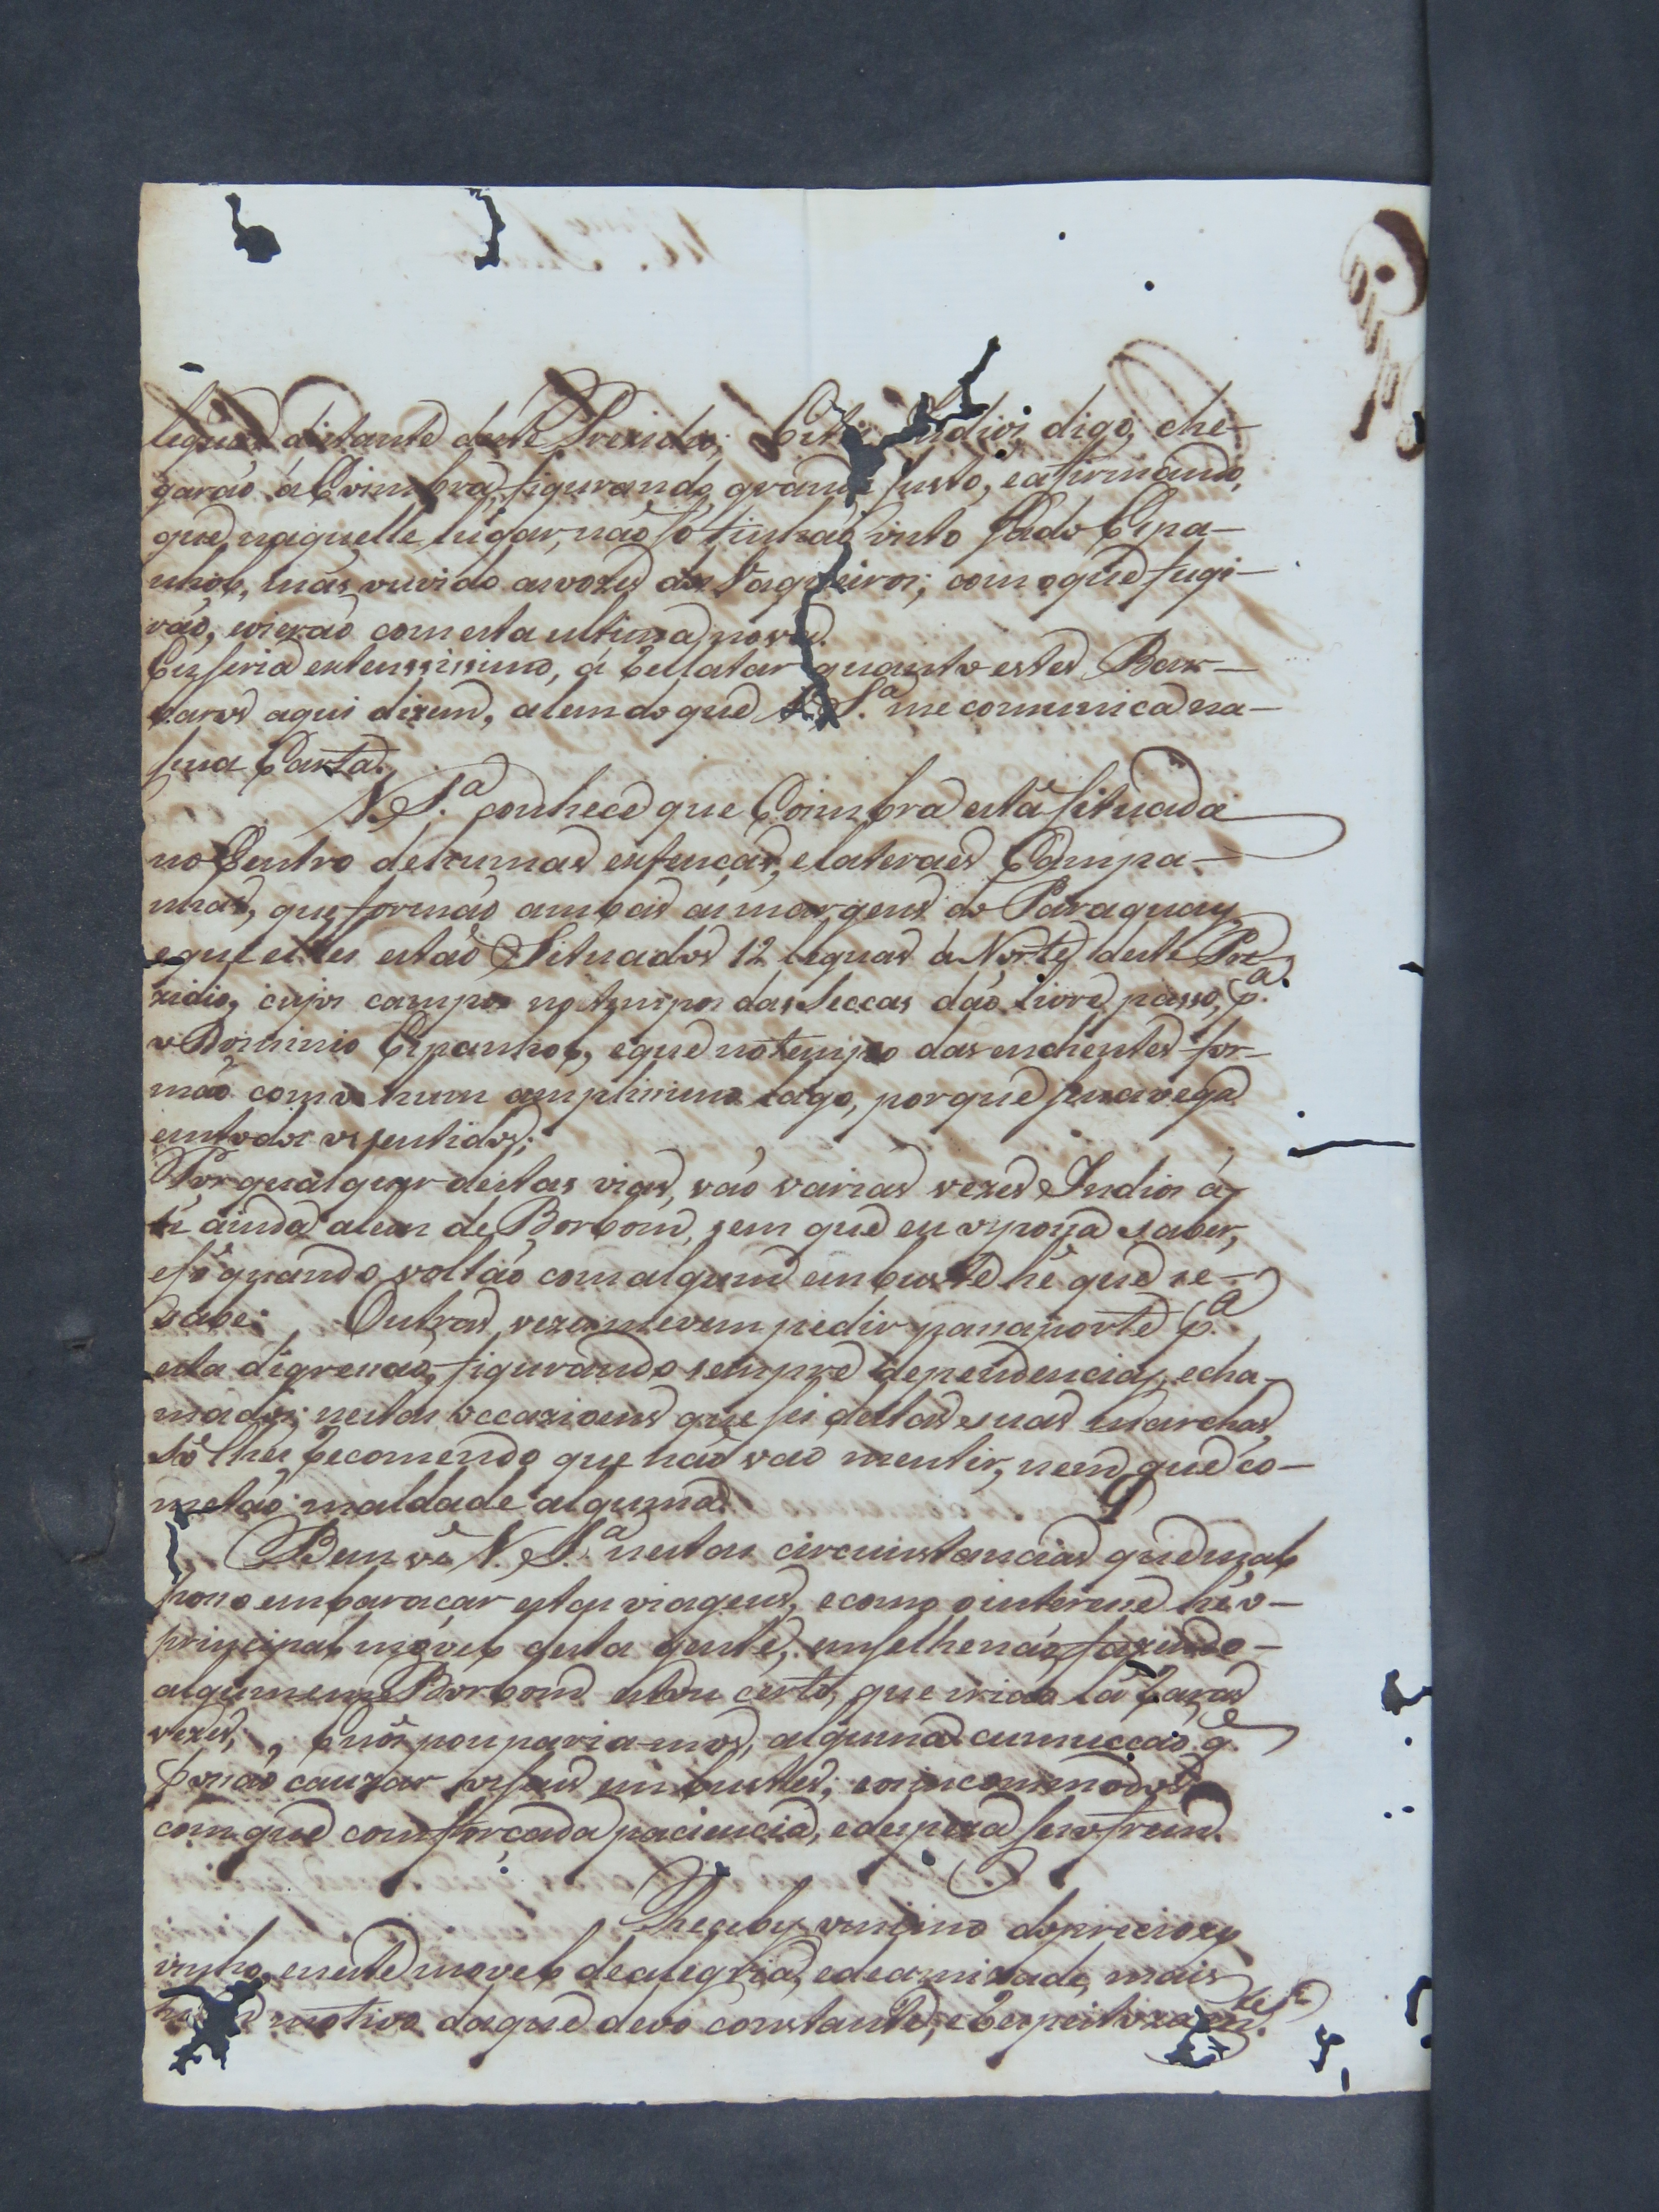 leguas distante deste Prezidio; Estes Indios, digo, che-
garaõ á Coimbra, figurando grande susto, e afirmando,
que naquelle lugar, naõ só tinhaõ visto Gado Espa-
nhol, mas ouvido as vozes dos Vaqueiros; com o que fugi-
raõ, e vieraõ com esta ultima nova.
Eu seria extenssissimo, á Rellatar quanto estes Bar-
baros aqui dizem, alem do que V. S.ª me comunica na
sua Carta.
V. S.ª conhece que Coimbra está situada
no Centro de humas extenças, e lateraes Campa-
nhas, que formaõ ambas as margens do Paraguay,
e que elles estaõ Situados 12 leguas á Norte deste Pre-
zidio, cujos campos no tempo das Seccas daõ livre passo, p.ª
o Dominio Espanhol, e que no tempo das enchentes for-
maõ como hum amplissimo Lago, porque se navega
em todos os sentidos;
Por qualquer destas vias, vaõ varias vezes Indios á-
té ainda alem de Borbom, sem que eu o possa saber,
e só quando voltaõ com algum embuste hé que se-
sabe: Outras vezes me vem pedir passaporte p.ª
esta digressaõ, figurando sempre dependencias, e cha-
mados; nestas occazioens que sei destas suas marchas,
só lhes Recomendo que naõ vaõ mentir, nem que co-
metaõ maldade alguma.
Bem vê V. S.ª nestas circunstancias que mal
posso embaraçar estas viagens, e como o interesse hé o-
principal movel desta gente, em se lhe naõ fazendo-
algum em Borbom estou certo, que iriaõ lá Raras
vezes; e nós poupariamos, alguma comucçaõ q.e
possaõ cauzar os seus embustes; e os incommodos
com que com forçada paciencia, e despeza se sofrem.
Recebÿ o mimo do preciozo
vinho, e neste movel de alegria, e de amizade, mais
motivo do que devo constante, e Respeitozam.te